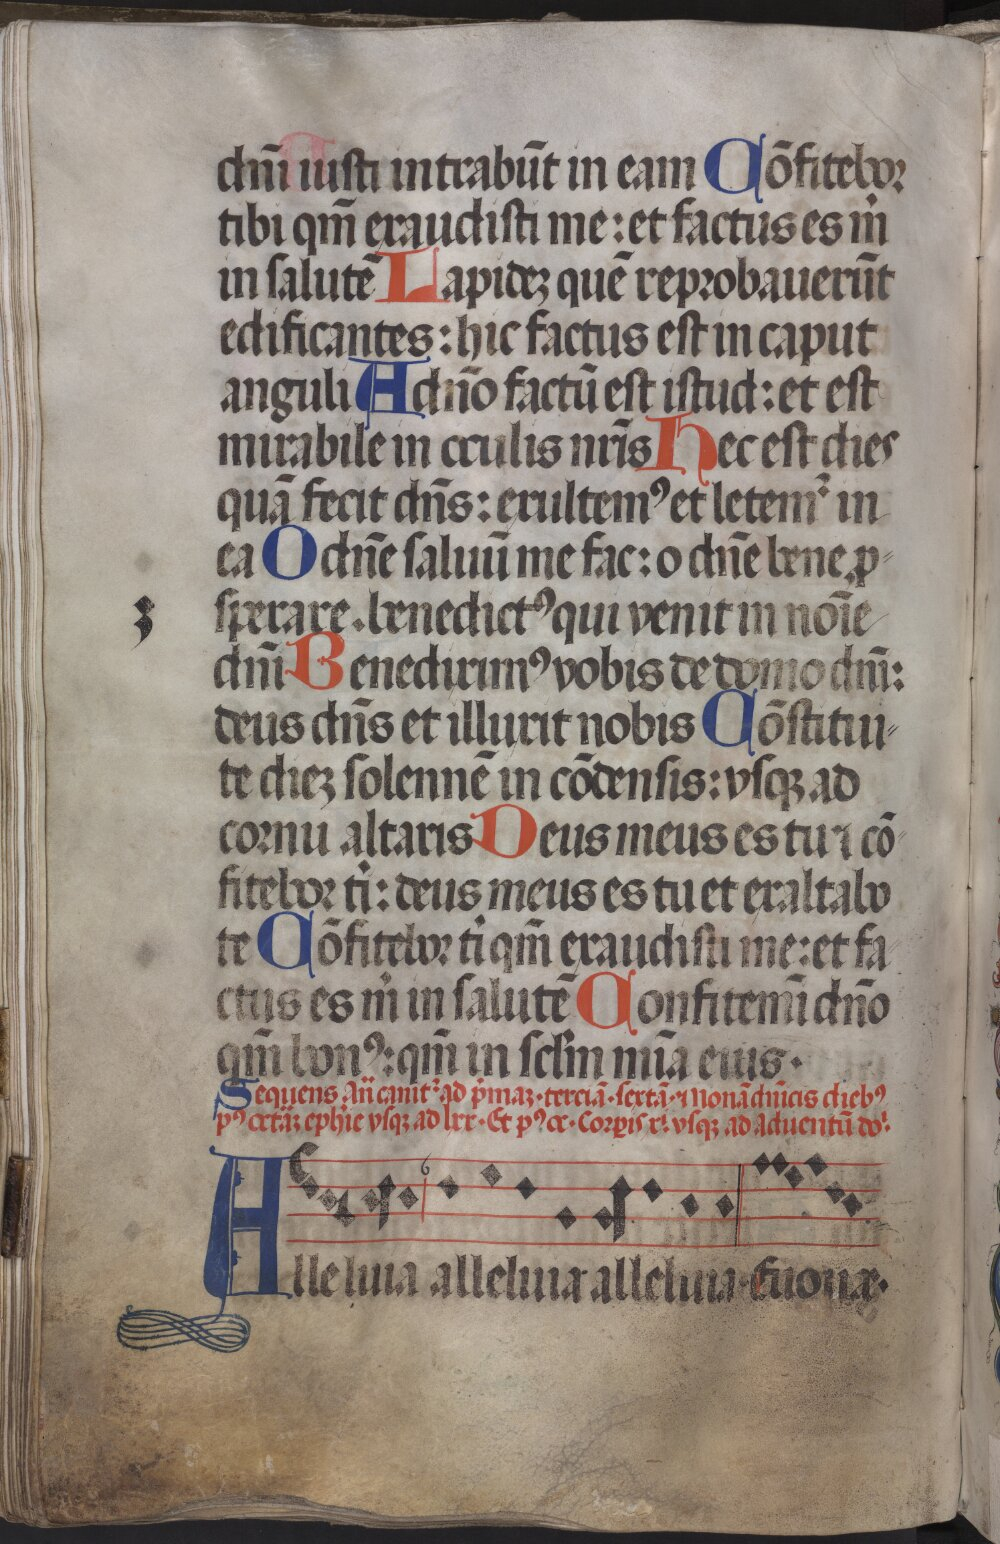 dñi iusti intrabūt in eam Cōfitebor
tibi qm̄ exaudisti me: et factus es m̍
in salutē Lapidez quē reprobauerūt
edificantes: hic factus est in caput
anguli A dño factū est istud: et est
mirabile in oculis nr̄is Hec est dies
quā fecit dñs: exultemꝰ et letemr̍ in
ea O dñe saluū me fac: o dñe bene ꝓ-
sperare. benedictꝰ qui venit in noīe
3
dñi Benediximꝰ vobis de domo dñi:
deus dñs et illuxit nobis Cōstitui-
te diez solennē in cōdensis: vsqꝫ ad
cornu altaris Deus meus es tu ⁊ cō-
fitebor ti̍: deus meus es tu et exaltabo
te Cōfitebor ti̍ qm̄ exaudisti me: et fa-
ctus es m̍ in salutē Confitemī dño
qm̄ bonꝰ: qm̄ in sclm̄ mīa eius.
Sequens añ canit᷑ ad p̍maz. terciā. sextā. ⁊ Nonā dñicis diebꝰ
pꝰ octaȝ ephīe vsqꝫ ad lxx. Et pꝰ oc. Corꝑis xi̍. vsqꝫ ad Aduentū do̍.
Alleluia alleluia alleluia. Euouae.